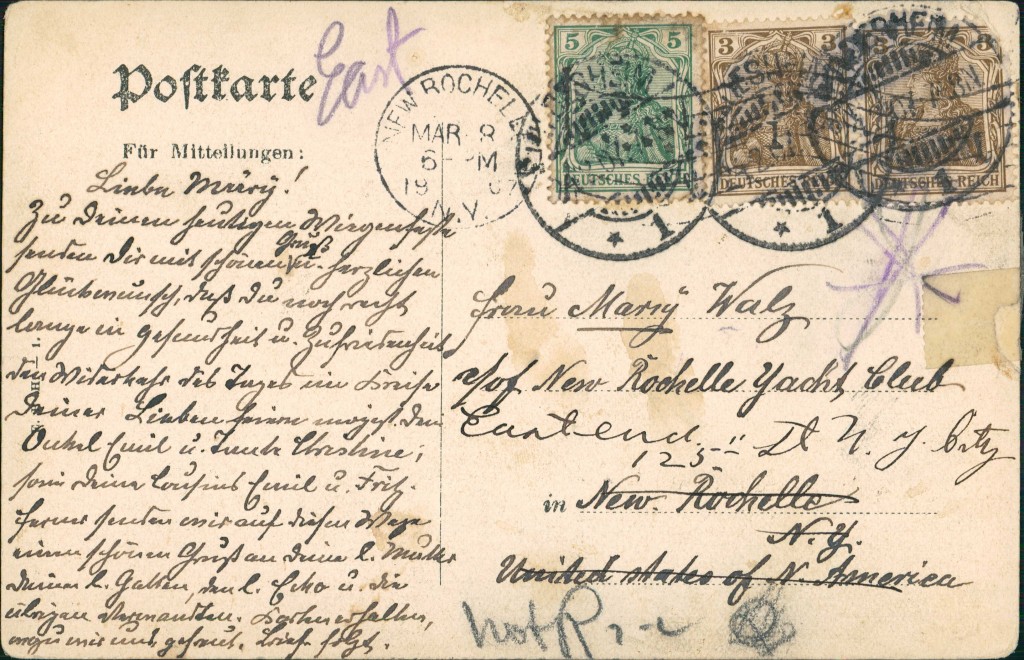 Postkarte
East
Für Mitteilungen:
NEW ROCHELLE
MAR 8
6-PM
1907
N.Y.
5 5
DEUTSCHES REICH
3 3
DEUTSCHES REICH
3
DEUTSCHES REICH
* 1
* 1
1
Liebe Mary!
Zu Deinem heutigen Wiegenfeste
senden Dir mit schönen Gruß u. herzlichen
Glückwunsch, daß Du noch recht
lange in Gesundheit u. Zufriedenheit
den Widerkehr des Tages im Kreise
Deiner Lieben feiern mögest. Dein
Onkel Emil u. Tante Christine;
sowie Deine Cousins Emil u. Fritz.
Ferner senden wir auf diesem Wege
einen schönen Gruß an Deine l. Mutter
Deinen l. Gatten, den l. u. die
übrigen Verwandten. Karten erhalten,
wozu wir uns gefreut. Brief folgt.
Frau Marry Walz
c/of New Rochelle Yacht Club
East end 125 St N. Y. City
in New Rochelle
N.Y.
United states of N. America
not